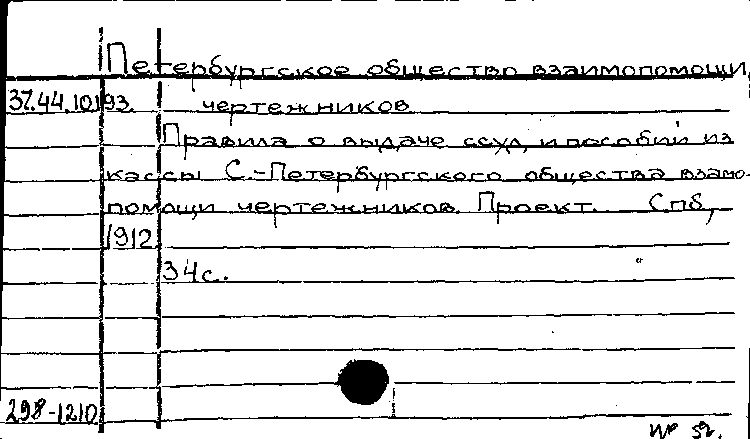 Петербургское общество взаимопомощи
37.44.10193. чертежников
Правила о выдаче ссуд и пособий из
кассы С.-Петербургского общества взаимо-
помощи чертежников. Проект. Спб,
1912
34с.
298-1210